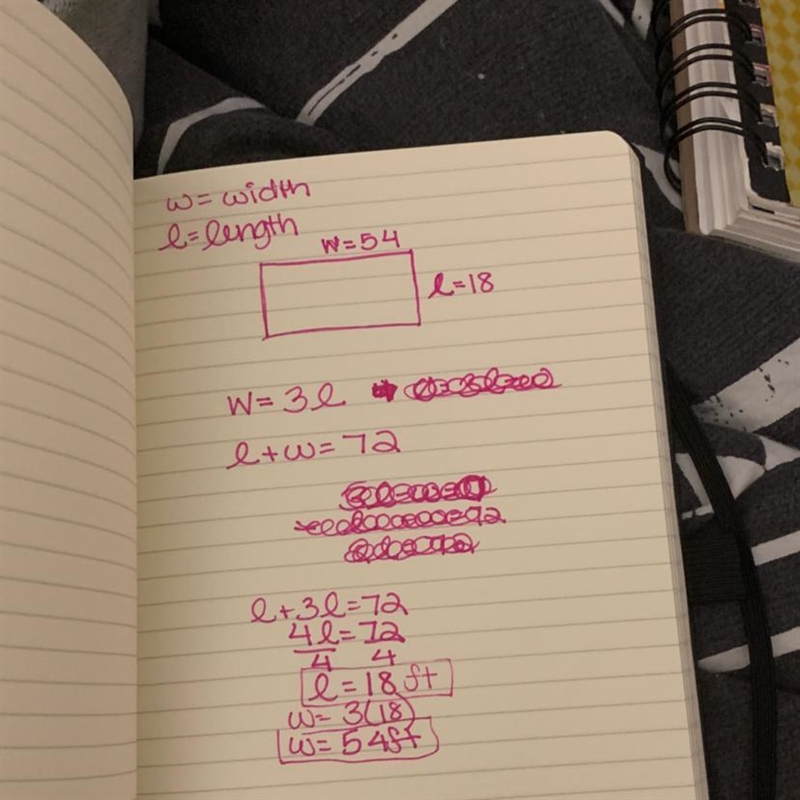 w = width
l = length
w = 54
l = 18
w = 3l
l + w = 72
l + 3l = 72
4l = 72
4 4
l = 18 ft
w = 3(18)
w = 54 ft